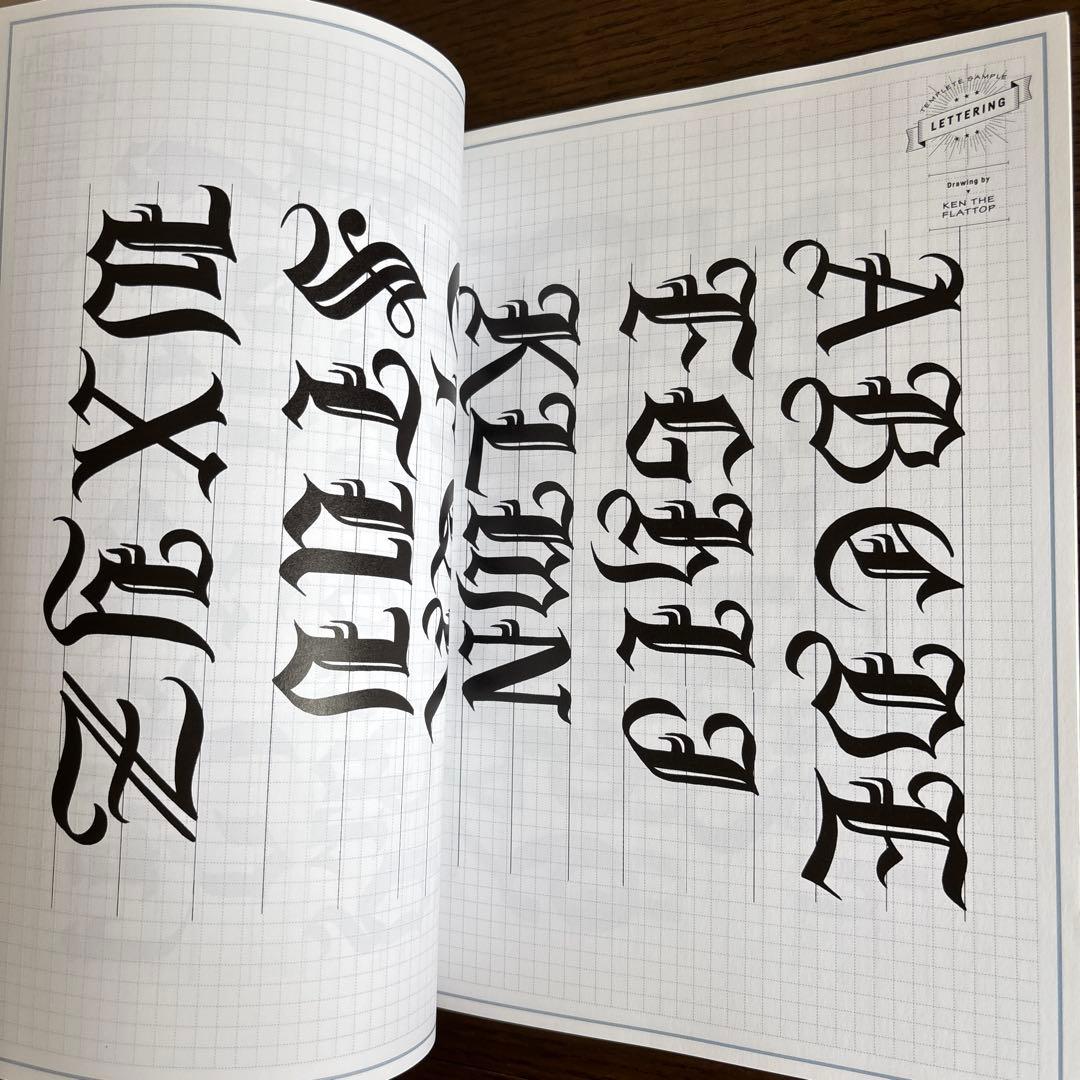 TEMPLETE SAMPLE
LETTERING
Drawing by
KEN THE
FLATTOP
A B C D E
F G H I J
K L M N
S T U V
W X Y Z